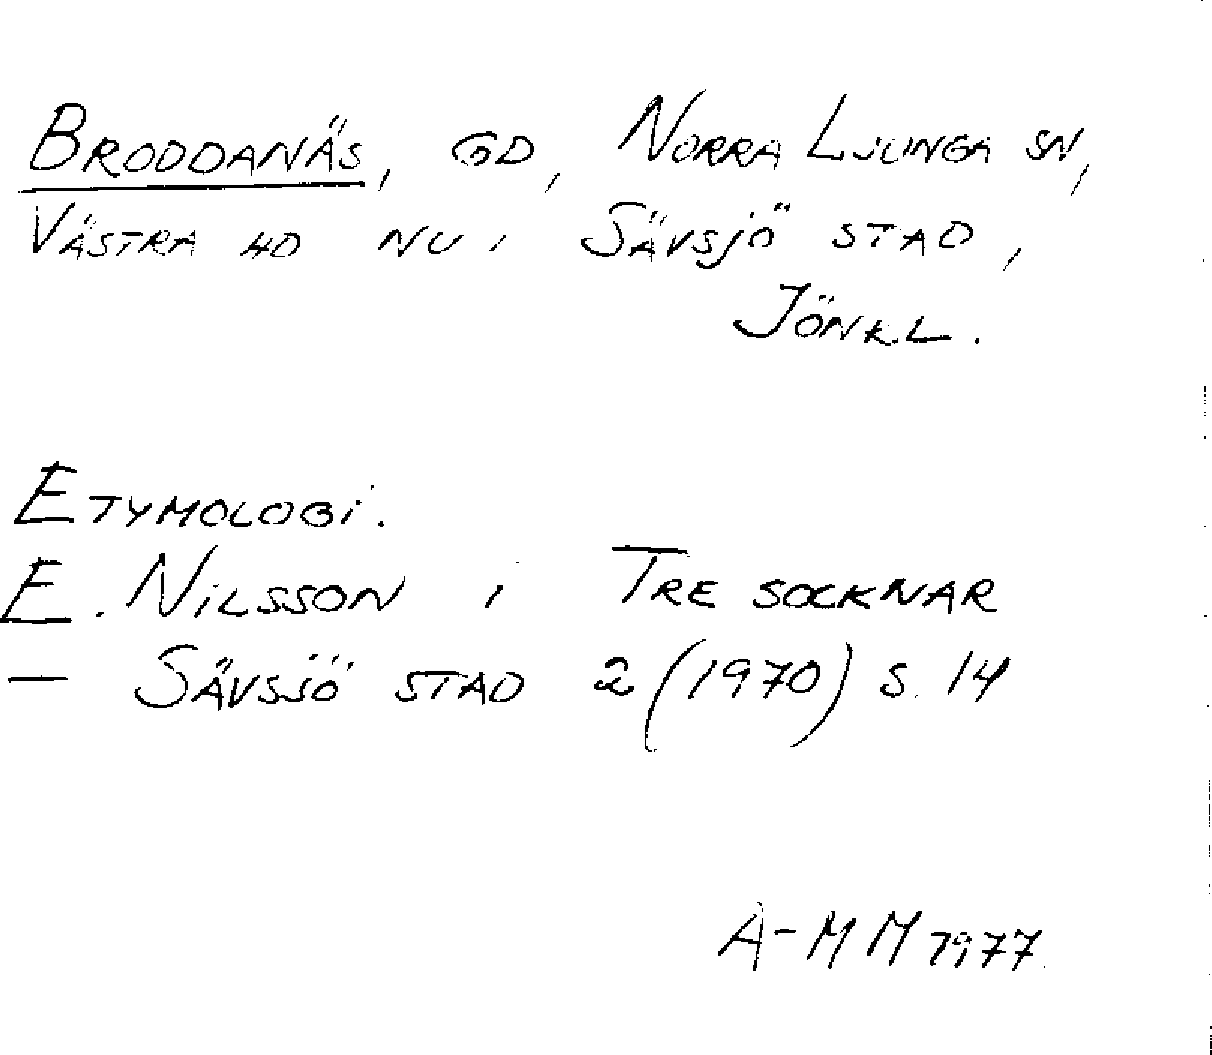 BRODDANÄS, GD, NORRA LJUNGA SN,
VÄSTRA HD NU I SÄVSJÖ STAD,
JÖNK.L.
ETYMOLOGI.
E. NILSSON I TRE SOCKNAR
— SÄVSJÖ STAD 2 (1970) S. 14
A-MM 1977